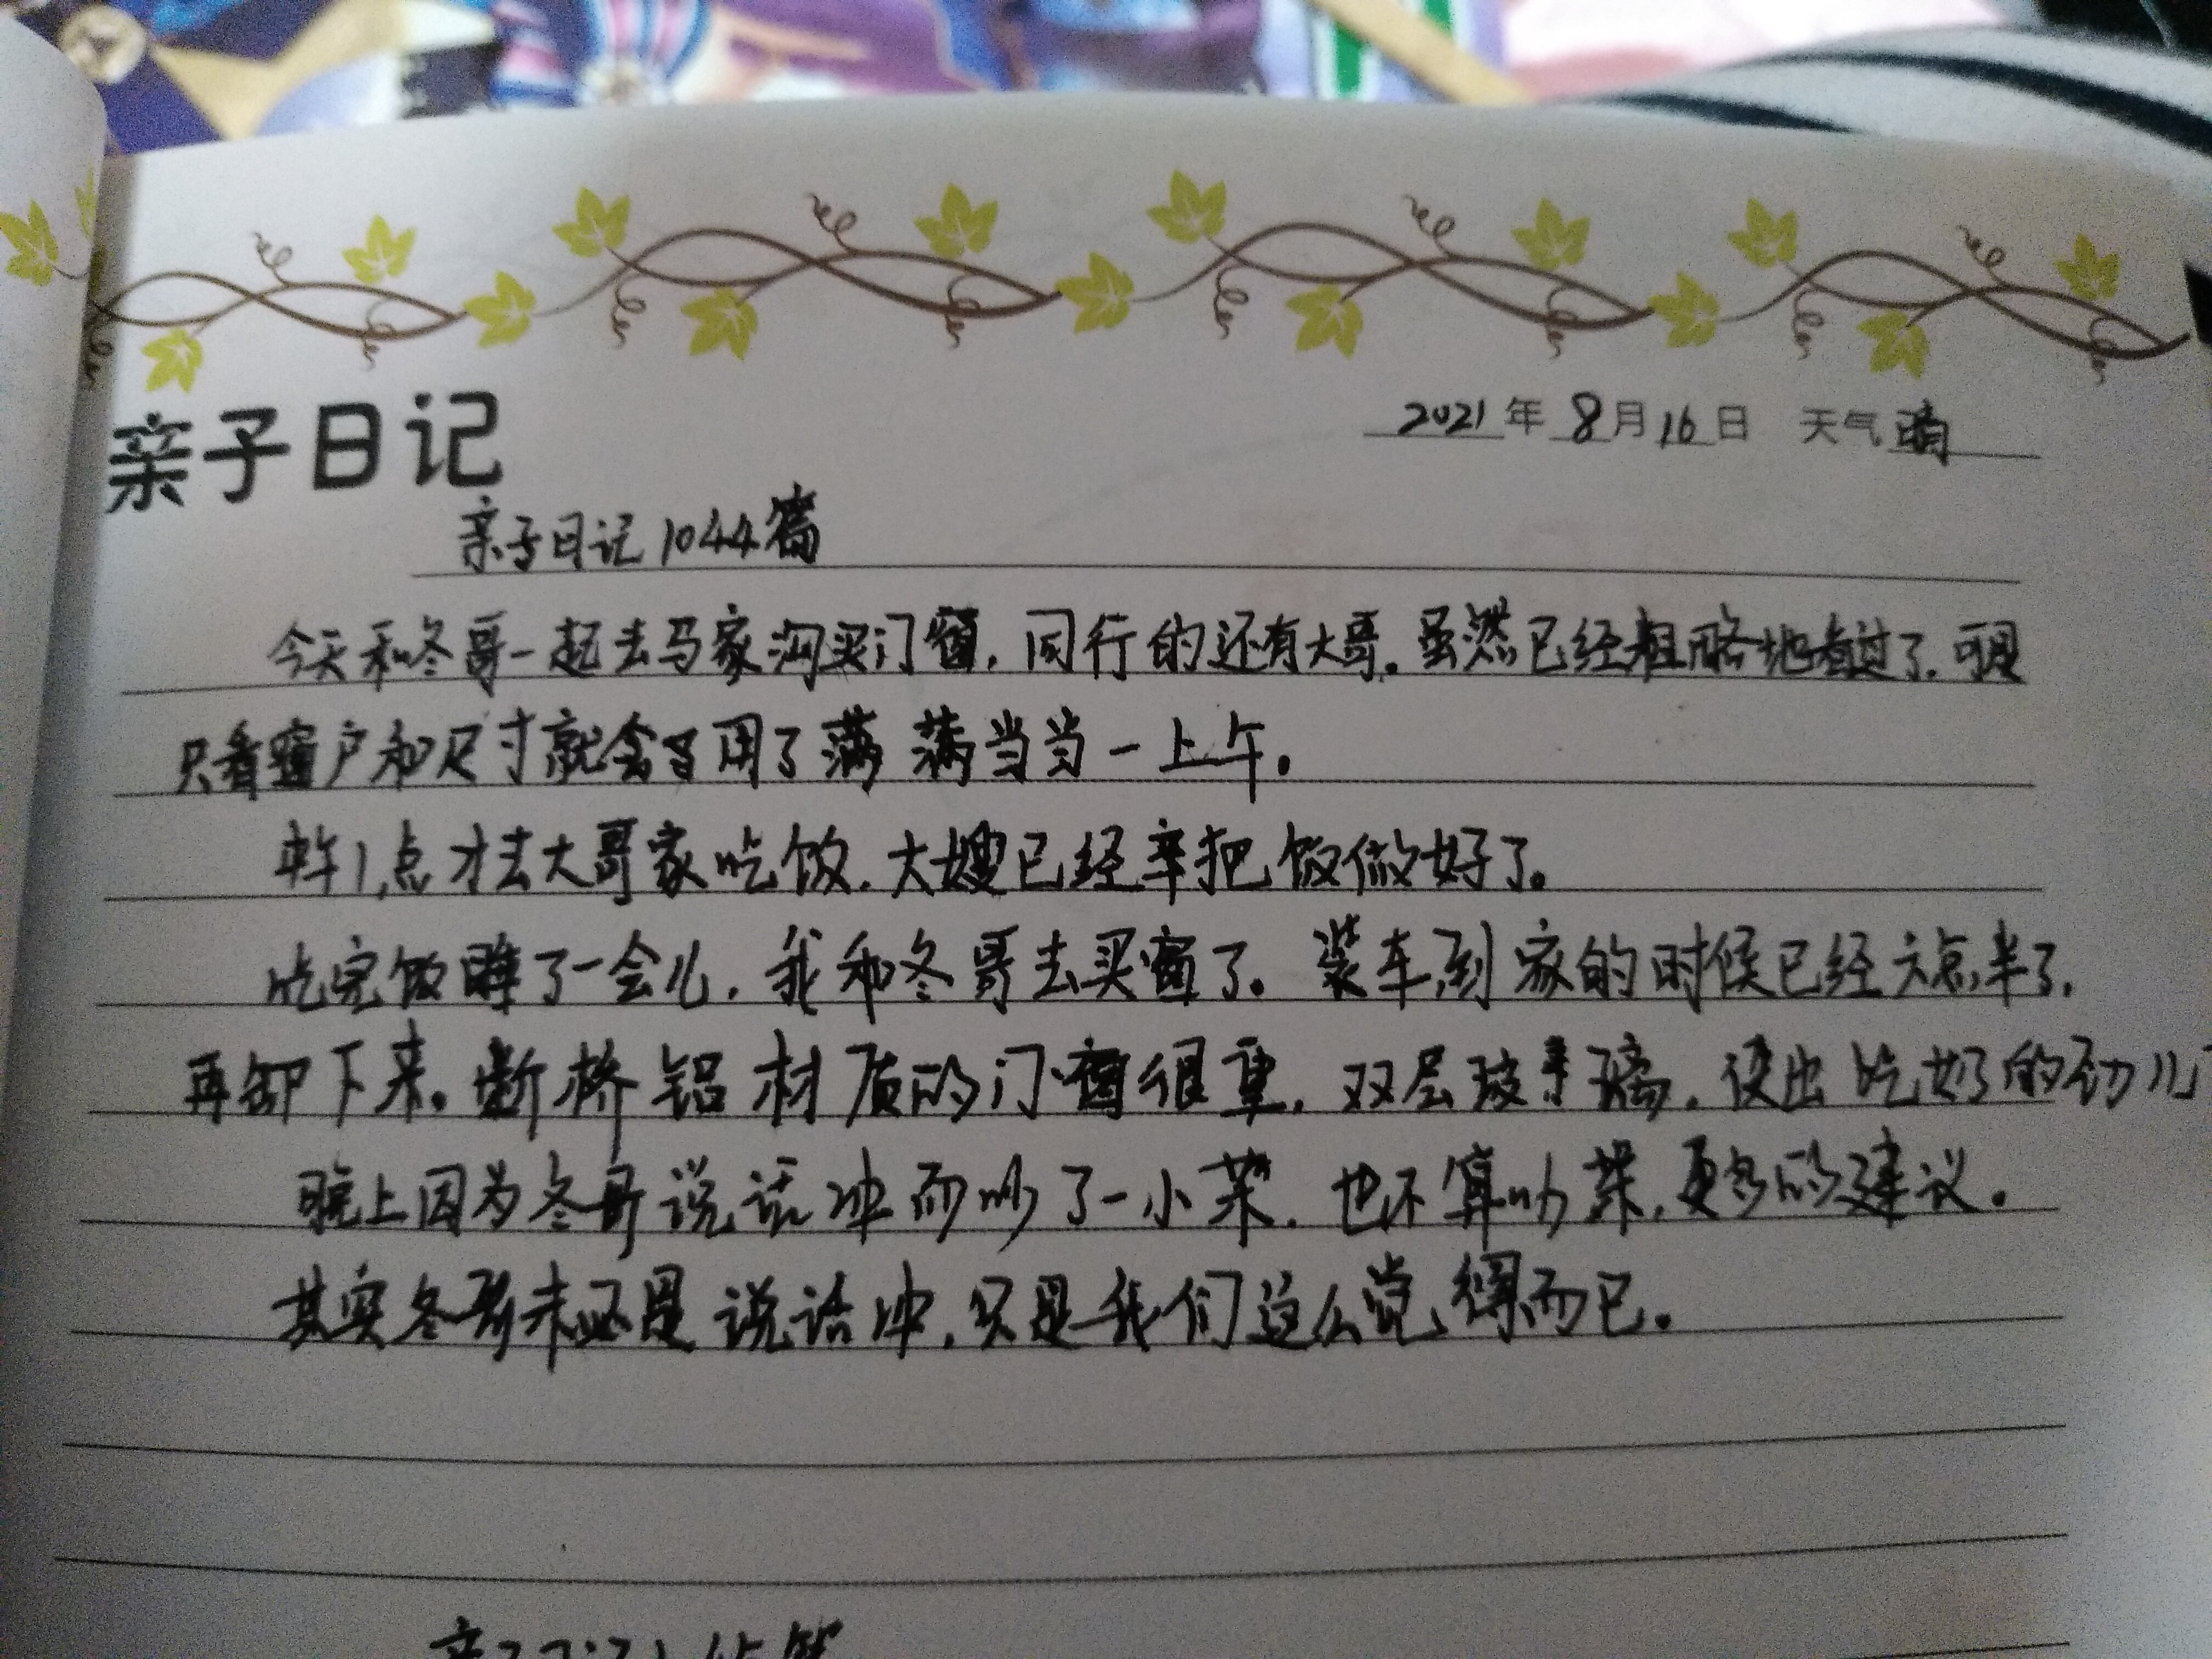 亲子日记
2021年8月16日 天气晴
亲子日记1044篇
今天和冬哥一起去马家沟买门窗,同行的还有大哥。虽然已经粗略地看过了.可是
只看窗户和尺寸就会用了满满当当一上午。
中午1点才去大哥家吃饭.大嫂已经早把饭做好了。
吃完饭睡了一会儿,我和冬哥去买窗了。装车到家的时候已经六点半了,
再卸下来。断桥铝材质的门窗很重,双层玻璃,使出吃奶的劲儿
晚上因为冬哥说话冲而吵了一小架.也不算吵架,更多的建议。
其实冬哥未必是说话冲,只是我们这么觉得而已。